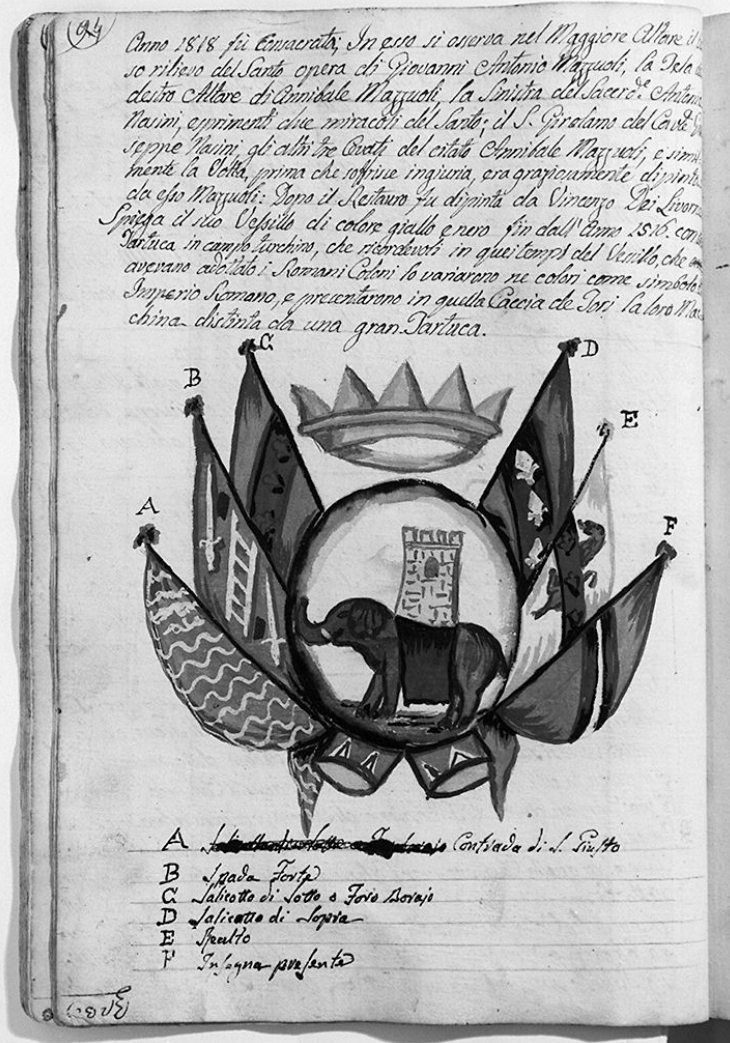 94
Anno 1818 fù Consacrata; In esso si osserva nel Maggiore Altare il
so rilievo del Santo opera di Giovanni Antonio Mazzuoli, la Tela
destro Altare di Annibale Mazzuoli, la Sinistra del Sacerd.e Antonio
Nasini, esprimenti due miracoli del Santo; il S. Girolamo del Cav.e
seppe Nasini, gli altri tre Ovati del citato Annibale Mazzuoli, e simil
mente la Volta, prima che soffrisse ingiuria, era graziosamente dipinta
da esso Mazzuoli: Dopo il Restauro fu dipinta da Vincenzo Dei Livorn
Spiega il suo Vessillo di colore giallo e nero fin dall'anno 1516. con
Tartuca in campo turchino, che ricordevoli in quei tempi del Vesillo, che
avevano adottato i Romani Coloni lo variarono ne colori come simbolo
Imperio Romano, e presentarono in quella Caccia de Tori la loro Mac
china distinta da una gran Tartuca.
C
D
B
E
A
F
A Contrada di S. Giusto
B Spada Forte
C Salicotto di Sotto o Foro Borajo
D Salicotto di Sopra
E Rialto
F Insegna presente